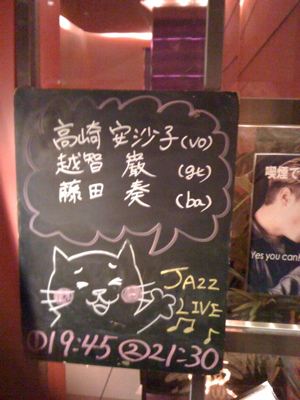 高崎 安沙子(vo)
越智 巌 (gt)
藤田 奏 (ba)
JAZZ
LIVE
①19:45 ②21:30
喫煙で
Yes you can!